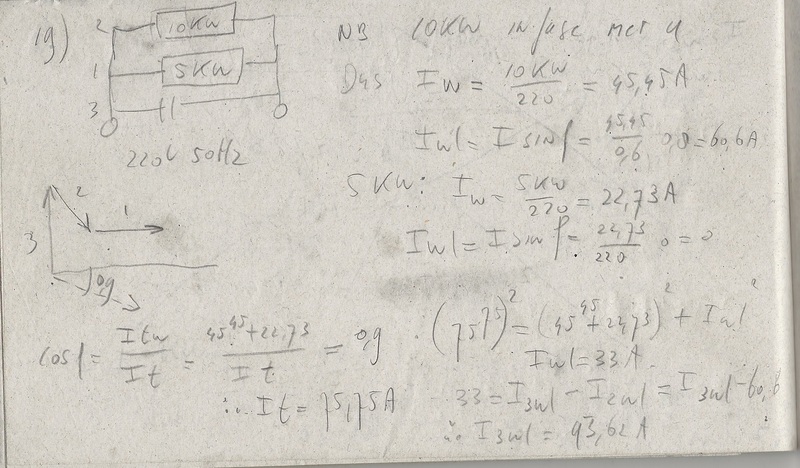 19)
2 10KW
1 5KW
3
220V 50Hz
NB 10KW in fase met U
Dus Iw = 10KW/220 = 45,45A
Iwl = I sin φ = 45,45/0,6 0,8 = 60,6A
5KW: Iw = 5KW/220 = 22,73A
Iwl = I sin φ = 22,73/220 0 = 0
3 2 1
0,9
cos φ = Itw/It = 45,45+22,73/It = 0,9
∴ It = 75,75A
(75,75)² = (45,45+22,73)² + Iwl²
Iwl = 33A.
33 = I3wl - I2wl = I3wl - 60,6
∴ I3wl = 93,62A